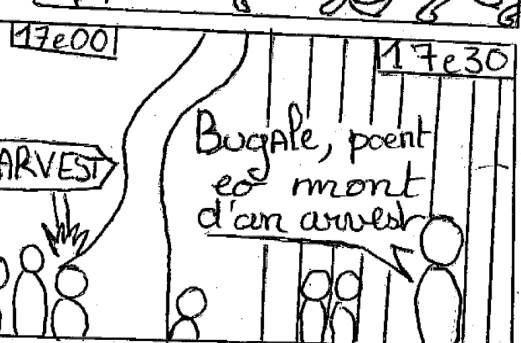 17e00
17e30
ARVEST
Bugale, poent
eo mont
d'an arvest